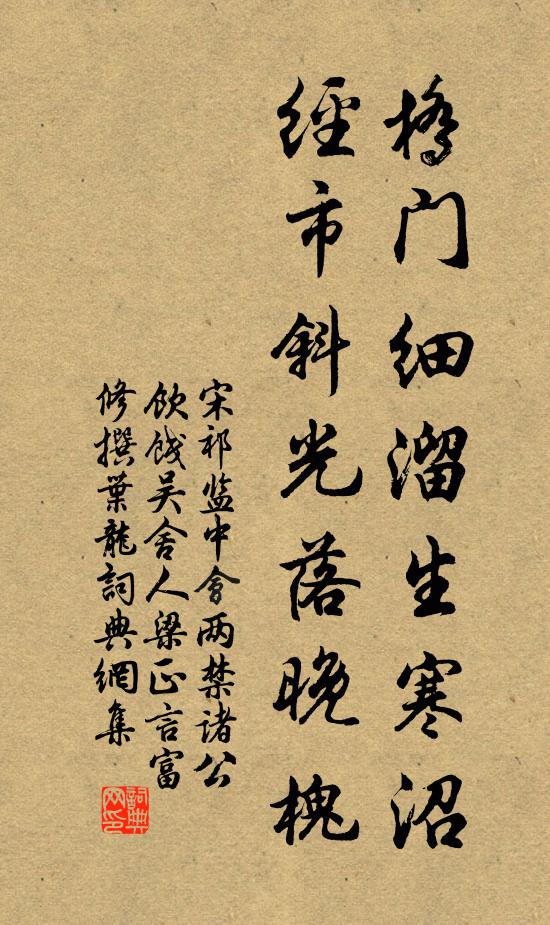 桥门细溜生寒沼
经市斜光落晚槐
宋祁监中会两禁诸公
饮饯吴舍人梁正言富
修撰葉龍詞典網集
詞典网印